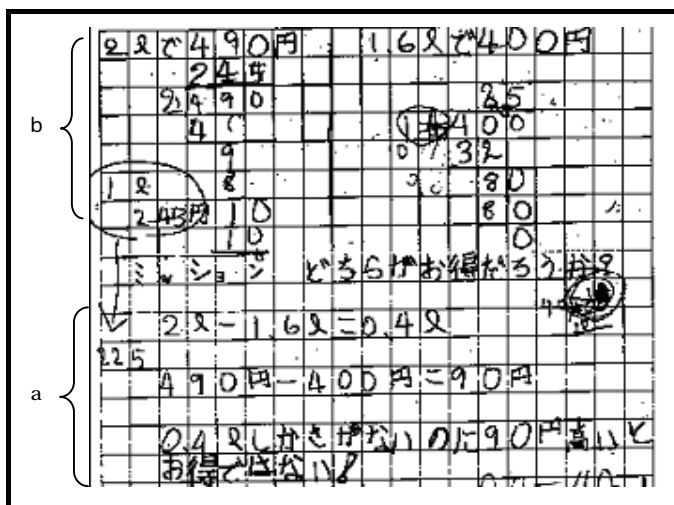 2ℓで490円 1.6ℓで400円
245
2 490
4
9
8
10
10
25
400
32
80
80
0
b
1ℓ
245円
ミッション どちらがお得だろうか?
2ℓ-1.6ℓ=0.4ℓ
225
490円-400円=90円
a
0.4ℓしかさがないのに90円高いと
お得ではない!